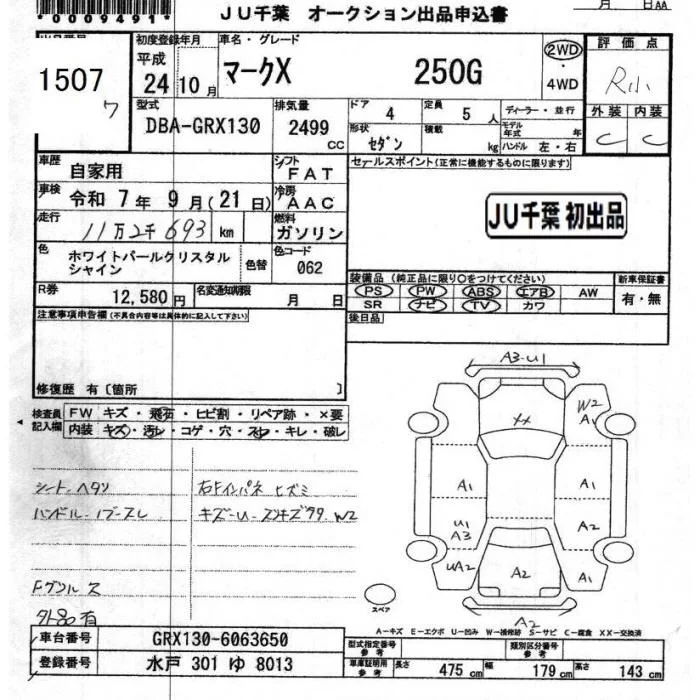 *0009491*
JU千葉 オークション出品申込書
月 日AA
初度登録年月
車名・グレード
2WD
・
4WD
評価点
1507
ワ
平成
24 10月
マークX
250G
R小
型式
排気量
ドア
4
定員
5 人
ディーラー・並行
外装
内装
DBA-GRX130
2499
CC
形状
セダン
積載
kg
モデル年式
年
ハンドル 左・右
C
C
車歴
自家用
シフト
FAT
セールスポイント(正常に機能するものに限ります)
車検
令和 7年 9月(21日)
冷房
AAC
走行
11万2千693 km
燃料
ガソリン
JU千葉 初出品
色
ホワイトパールクリスタル
シャイン
色替
色コード
062
R券
12,580円
名変通知期限
月 日
装備品(純正品に限り○をつけてください)
新車保証書
PS
PW
ABS
エアB
AW
有・無
SR
ナビ
TV
カワ
注意事項申告欄(不具合内容等は具体的に記入して下さい)
後日品
修復歴 有〔箇所 〕
検査員
記入欄
FW
キズ・飛石・ヒビ割・リペア跡・×要
内装
キズ・汚レ・コゲ・穴・スレ・キレ・破レ
A3-U1
W2
A1
XX
A1
A1
U1
A3
A2
UA2
A2
A1
A2
スペア
シートヘタリ
ハンドルノブースレ
キズーU-スリキズ99 W2
Fグリルス
外品有
A-キズ E-エクボ U-凹み W-補修跡 S-サビ C-腐食 XX-交換済
車台番号
GRX130-6063650
型式指定番号
参考
類別区分番号
参考
登録番号
水戸 301 ゆ 8013
車庫証明用
参考
長さ
475 cm
幅
179 cm
高さ
143 cm